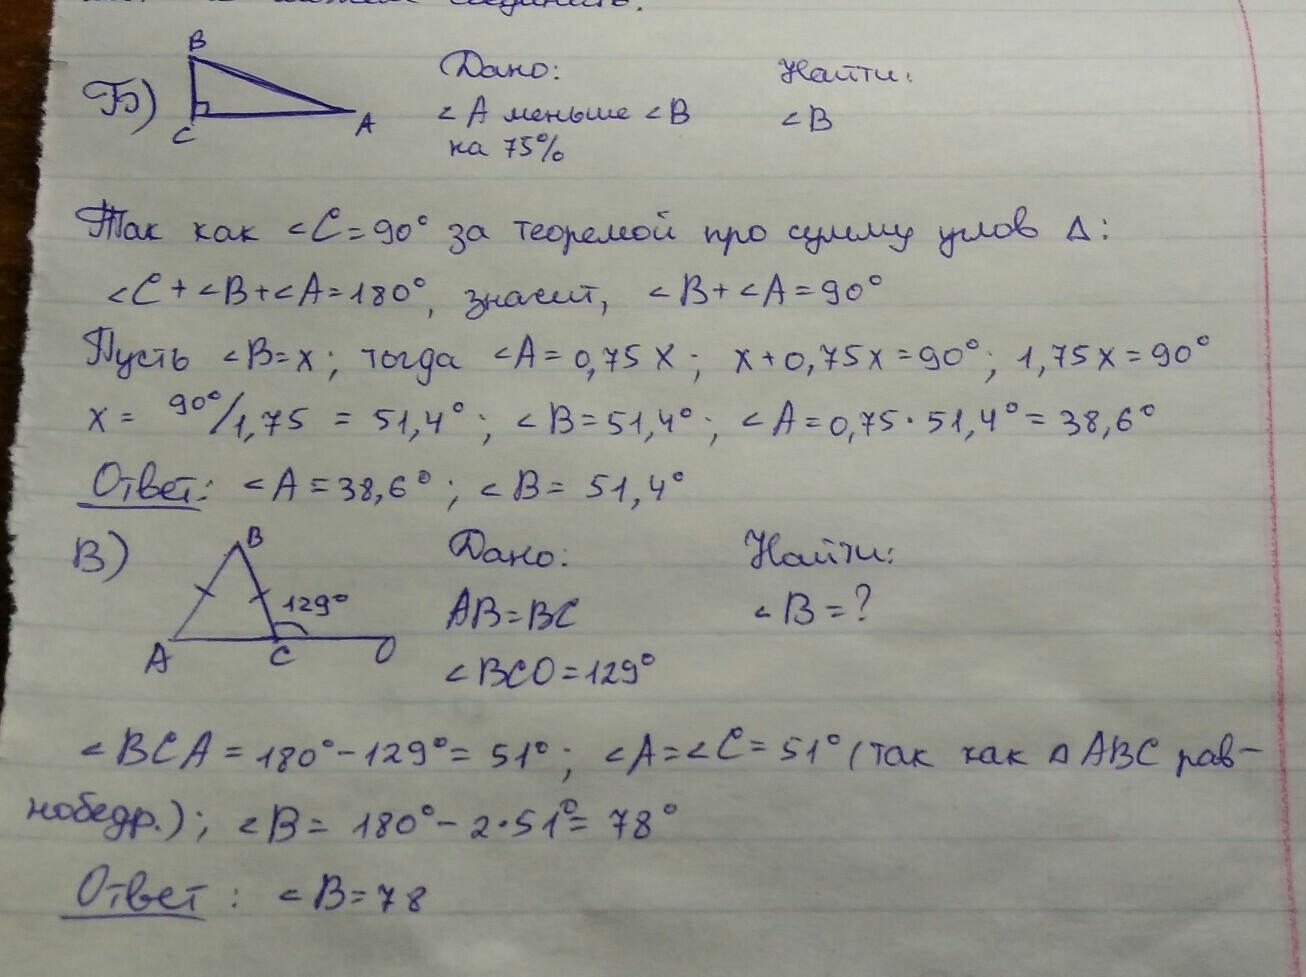 B
Б)
C
A
Дано: Найти:
∠A меньше ∠B ∠B
на 75%
Так как ∠C = 90° за теоремой про сумму углов Δ:
∠C + ∠B + ∠A = 180°, значит, ∠B + ∠A = 90°
Пусть ∠B = x; тогда ∠A = 0,75 x; x + 0,75x = 90°; 1,75x = 90°
x = 90°/1,75 = 51,4°; ∠B = 51,4°; ∠A = 0,75 · 51,4° = 38,6°
Ответ: ∠A = 38,6°; ∠B = 51,4°
В)
B
129°
A C O
Дано: Найти:
AB = BC ∠B = ?
∠BCO = 129°
∠BCA = 180° – 129° = 51°; ∠A = ∠C = 51° (так как Δ ABC рав–
нобедр.); ∠B = 180° – 2 · 51° = 78°
Ответ: ∠B = 78